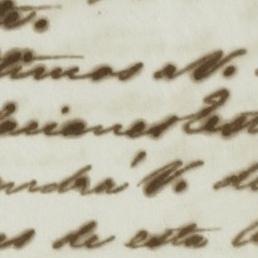 te.
ltimos a V.
laciones Est
endrá V. de
es de esta l